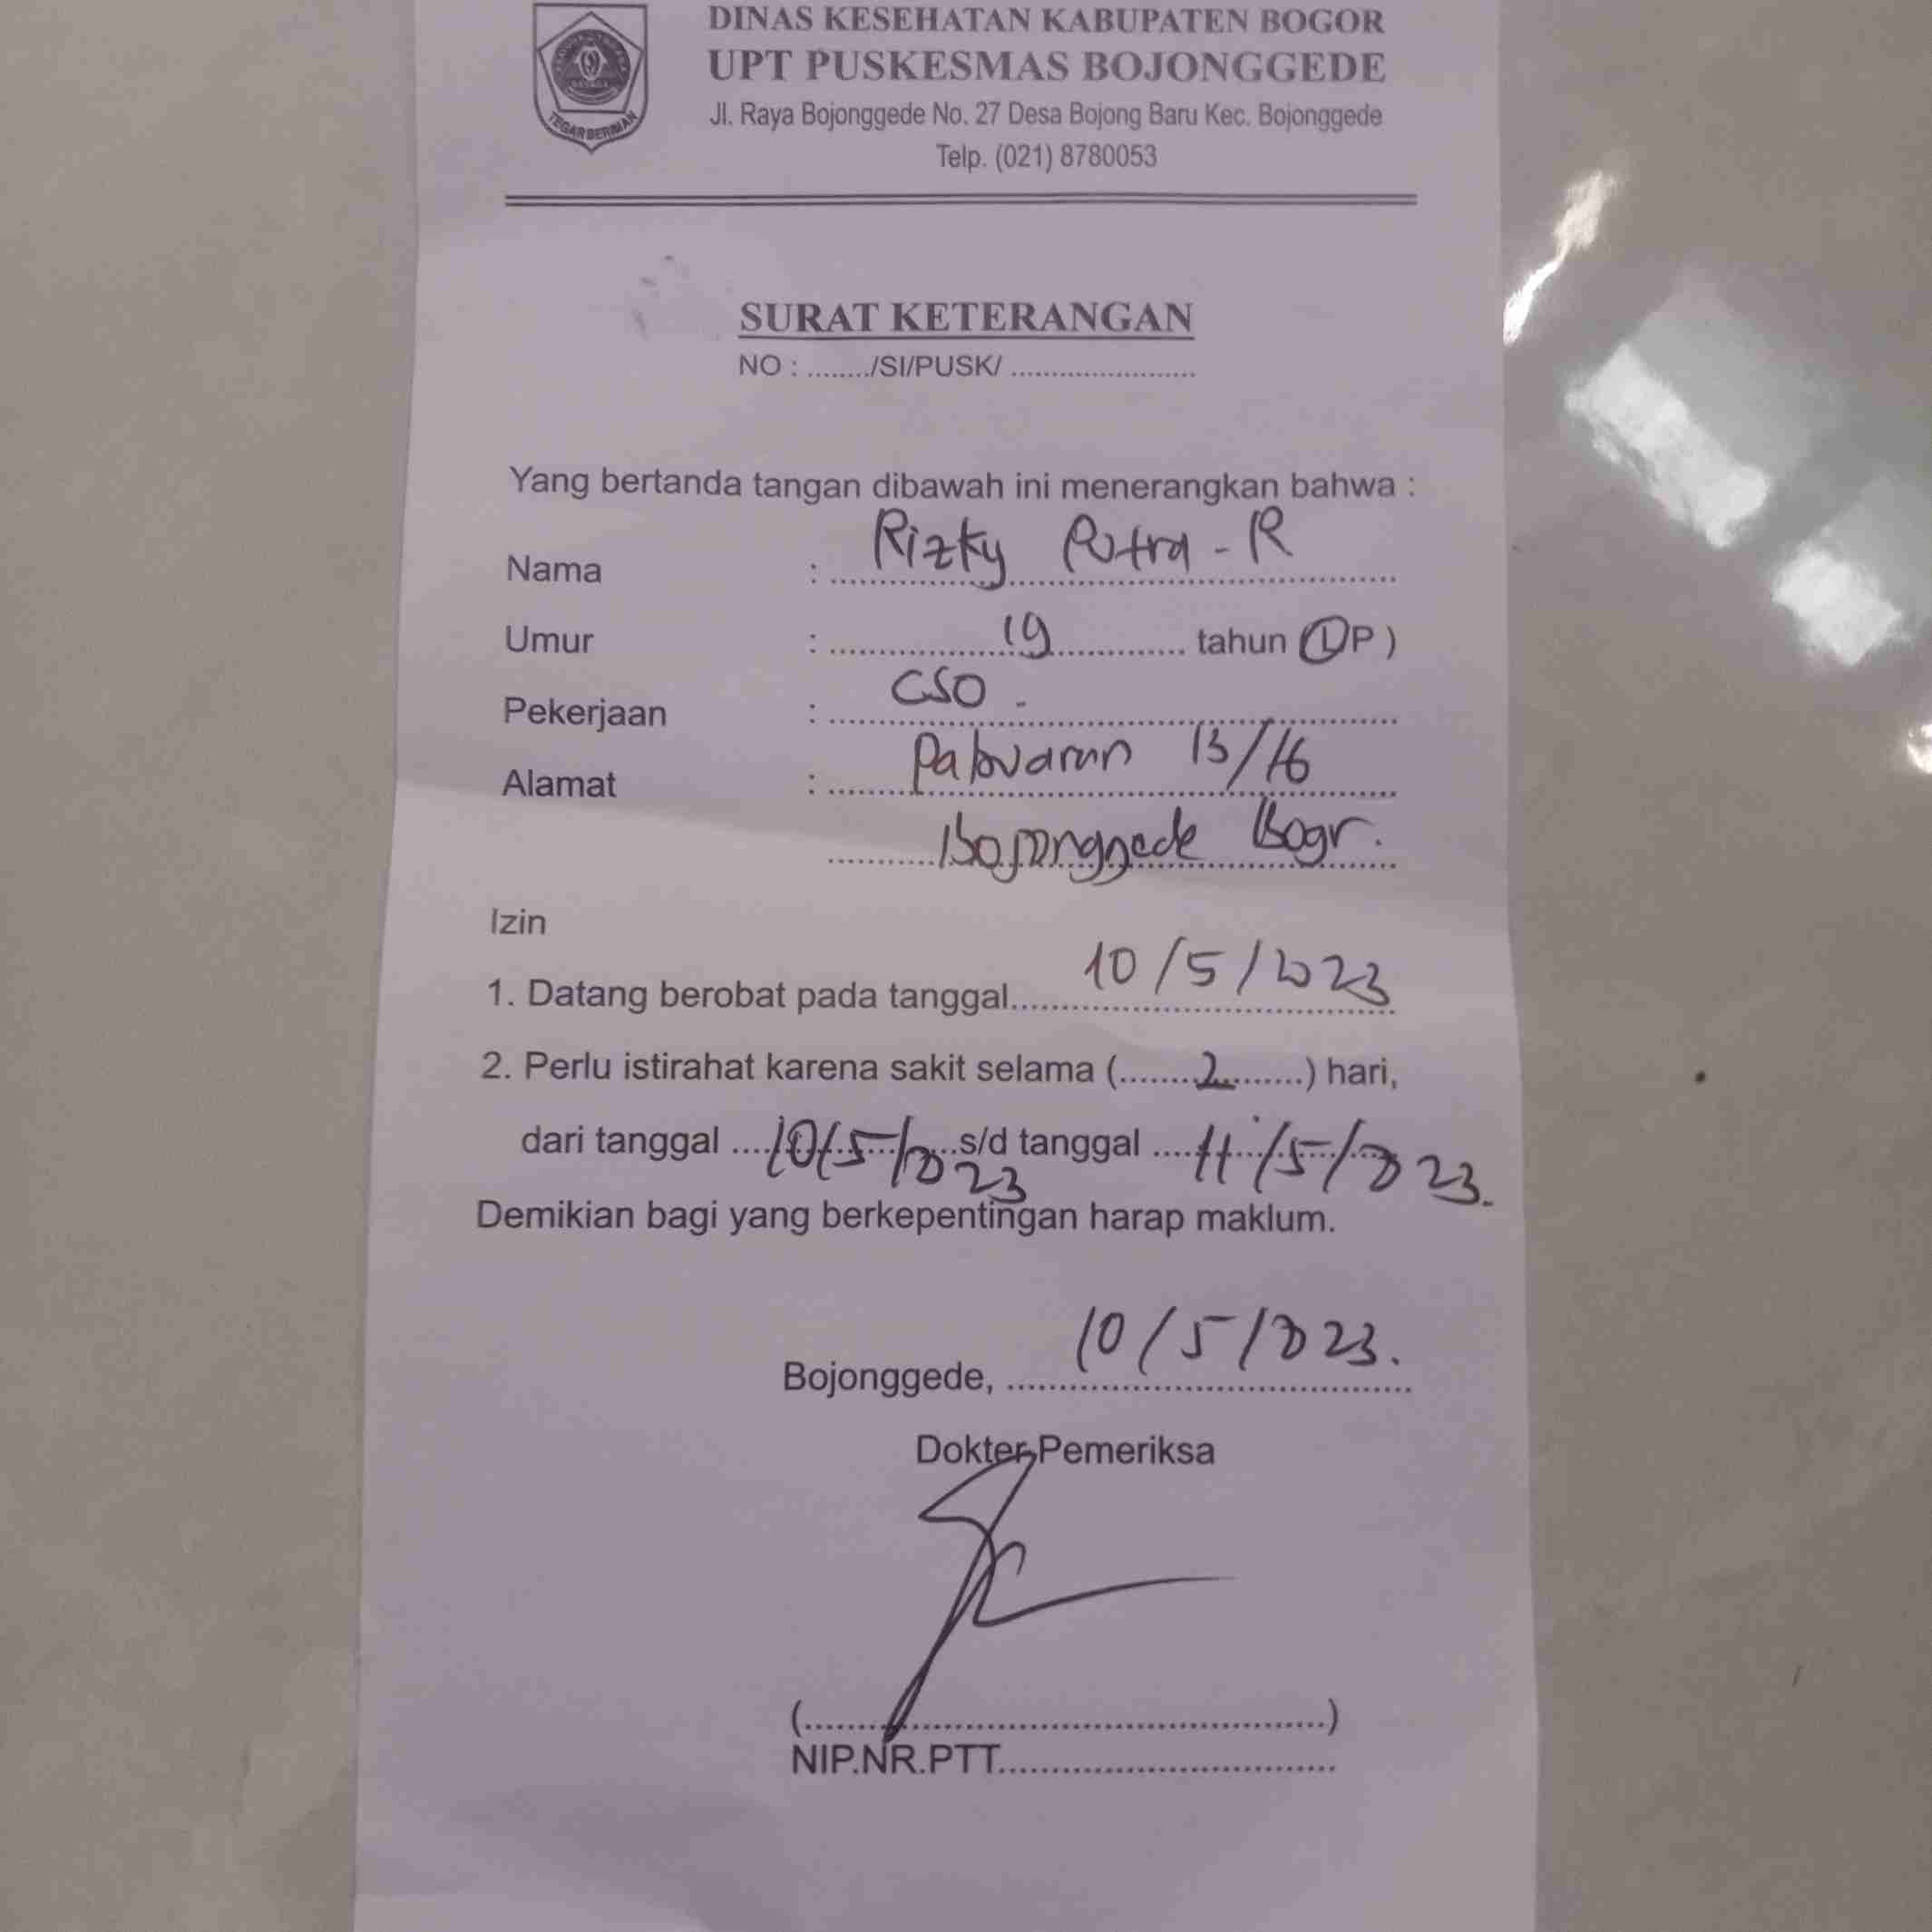 DINAS KESEHATAN KABUPATEN BOGOR
UPT PUSKESMAS BOJONGGEDE
Jl. Raya Bojonggede No. 27 Desa Bojong Baru Kec. Bojonggede
Telp. (021) 8780053
TEGAR BERIMAN
SURAT KETERANGAN
NO : ......../SI/PUSK/ .......................
Yang bertanda tangan dibawah ini menerangkan bahwa :
Nama : Rizky Putra - R
Umur : 19 tahun (L/P)
Pekerjaan : CSO .
Alamat : Pabuaran 13/16
Bojonggede Bogr.
Izin
1. Datang berobat pada tanggal 10/5/2023
2. Perlu istirahat karena sakit selama (........2.........) hari,
dari tanggal ....10/5/2023 s/d tanggal ....11/5/2023.
Demikian bagi yang berkepentingan harap maklum.
Bojonggede, 10/5/2023.
Dokter Pemeriksa
(..................................................)
NIP.NR.PTT..................................